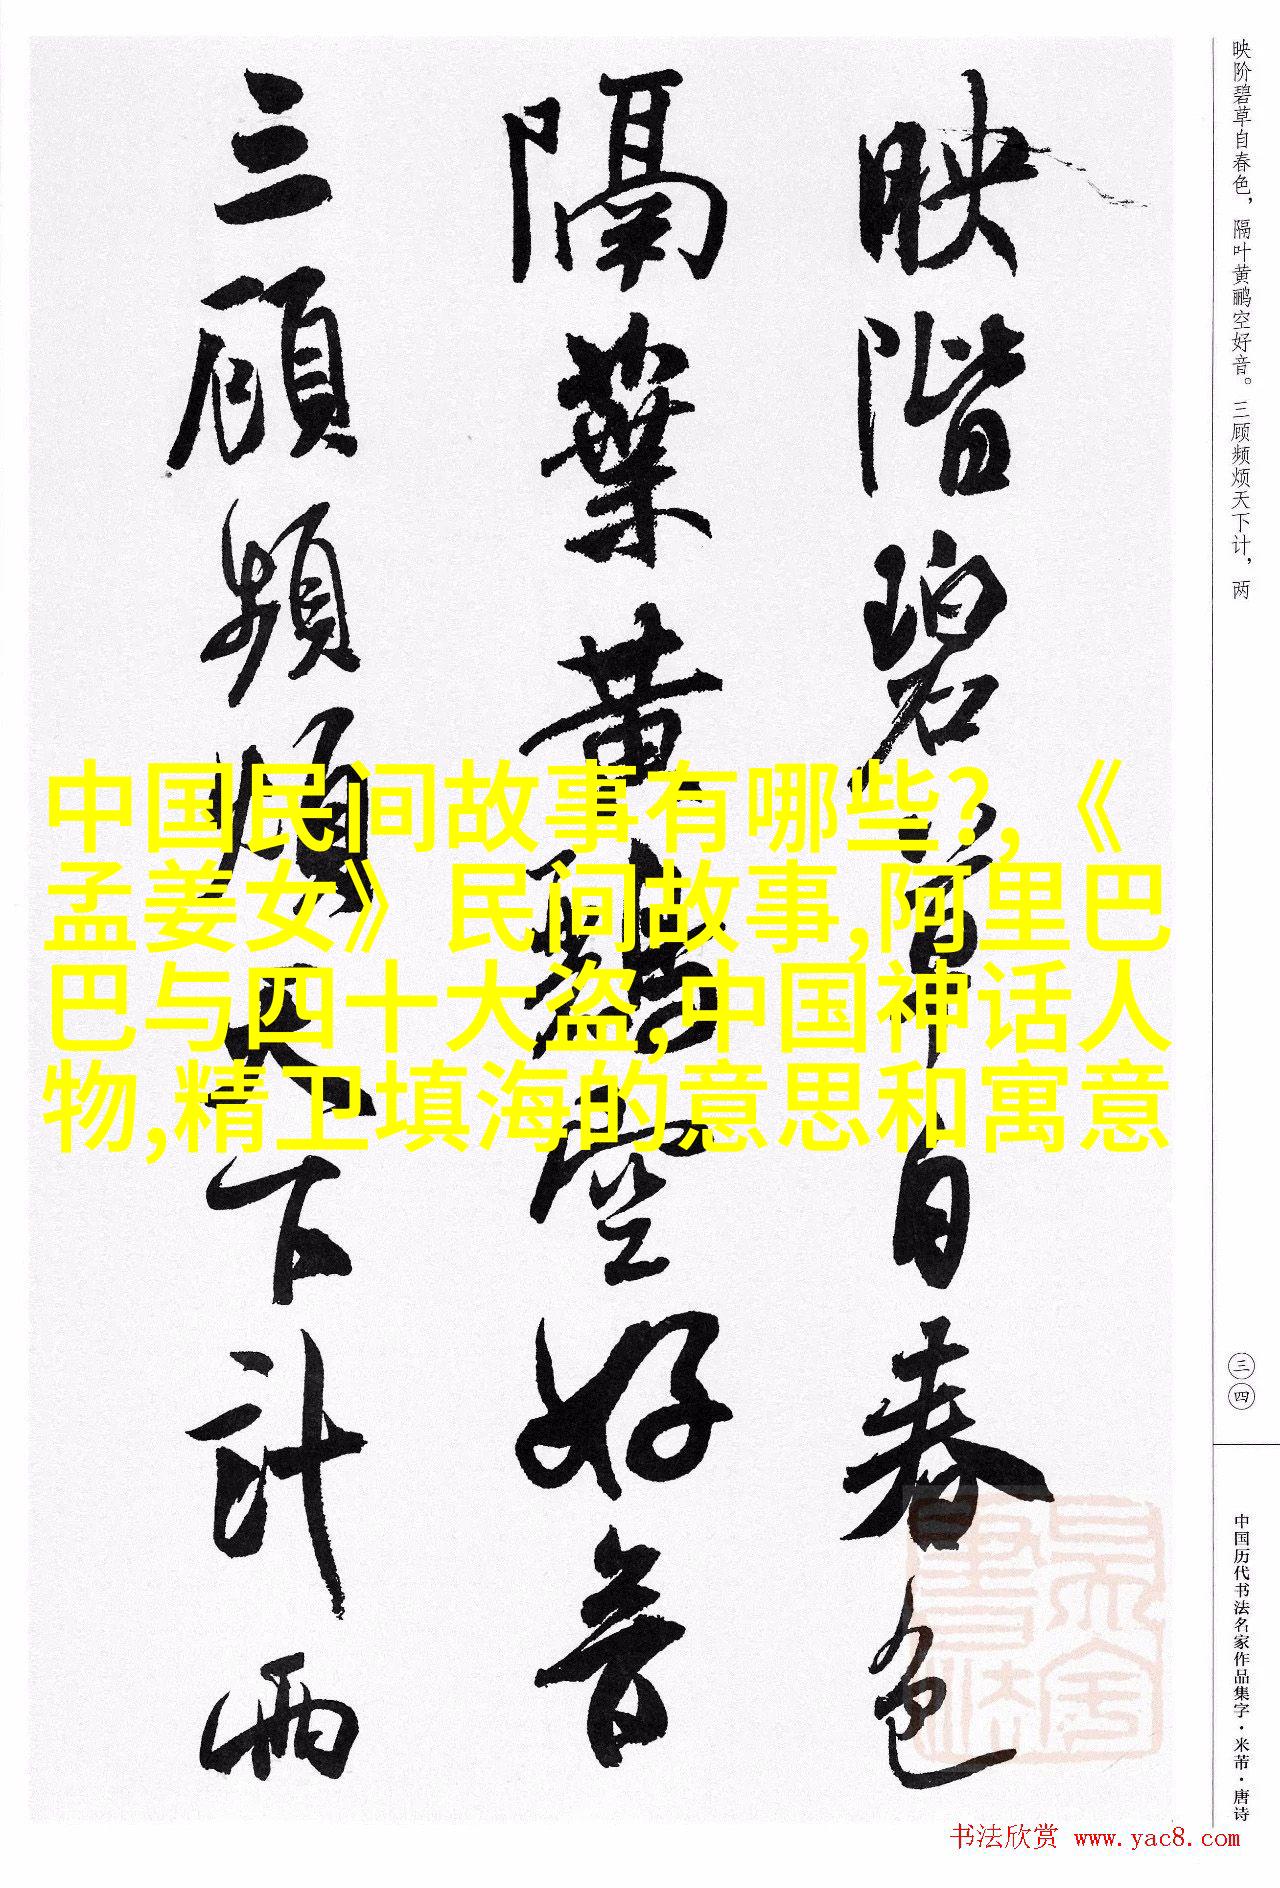 映階碧草自春色
隔葉黄鸝空好音
三顧頻煩天下計兩
中国民间故事有哪些?,《
孟姜女》民间故事,阿里巴
巴与四十大盗,中国神话人
物,精卫填海的意思和寓意
映阶碧草自春色，隔叶黄鹂空好音。三顾频烦天下计，两
三四
中国历代书法名家作品集字·米芾·唐诗
书法欣赏 www.yac8.com